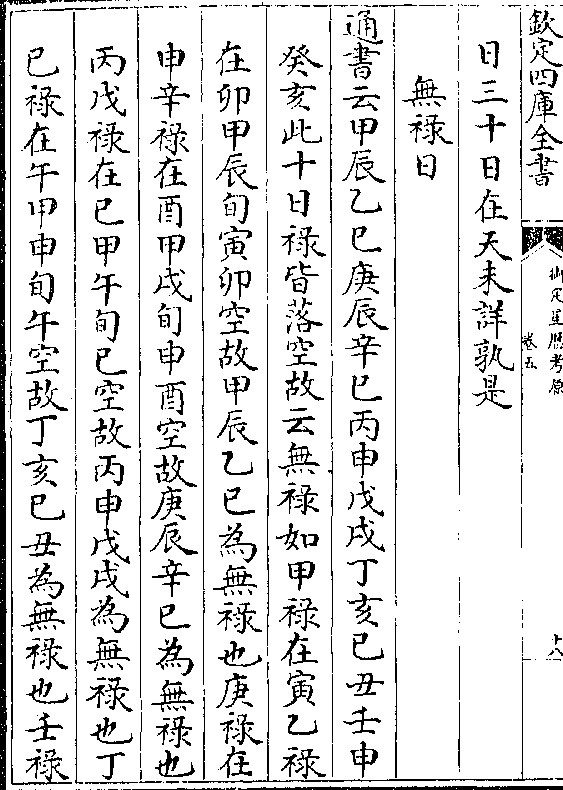 欽定四庫全書
御定星厯考原
卷五
十八
日三十日在天未詳孰是
無祿日
通書云甲辰乙巳庚辰辛巳丙申戊戌丁亥己丑壬申
癸亥此十日祿皆落空故云無祿如甲祿在寅乙祿
在卯甲辰旬寅卯空故甲辰乙巳為無祿也庚祿在
申辛祿在酉甲戌旬申酉空故庚辰辛巳為無祿也
丙戊祿在巳甲午旬巳空故丙申戊戌為無祿也丁
巳祿在午甲申旬午空故丁亥巳丑為無祿也壬祿